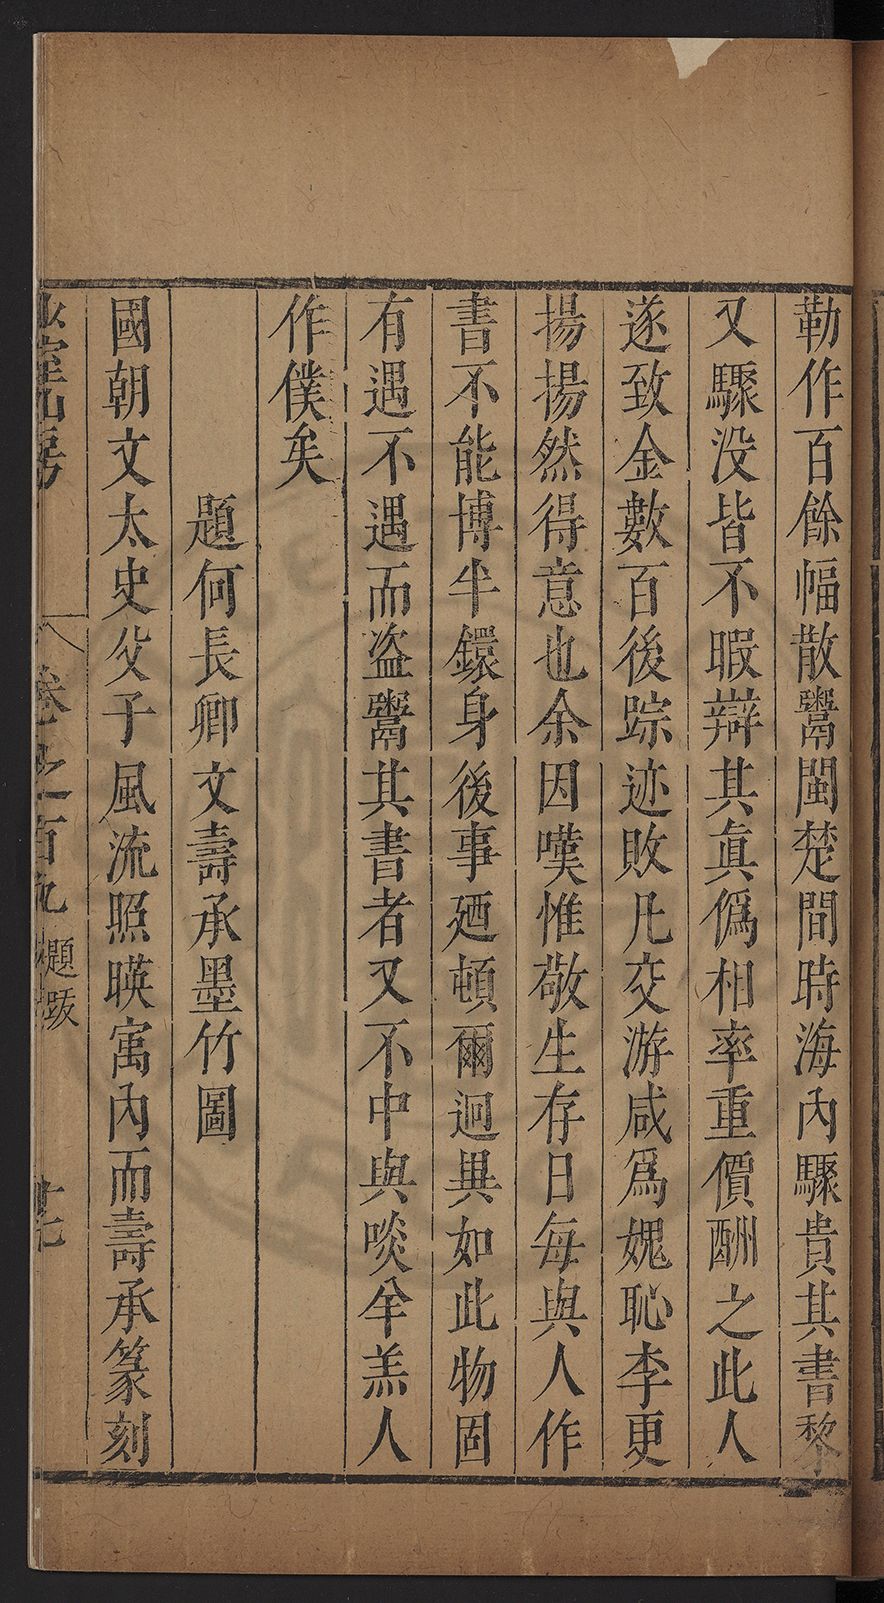 勒作百餘幅散鬻閩楚間時海內驟貴其書黎
又驟没皆不暇辯其眞僞相率重價酬之此人
遂致金數百後踪迹敗凡交游咸爲媿恥李更
揚揚然得意也余因嘆惟敬生存日每與人作
書不能博半鐶身後事廼頓爾迥異如此物固
有遇不遇而盗鬻其書者又不中與啖羊羔人
作僕矣
題何長卿文壽承墨竹圖
國朝文太史父子風流照暎寓內而壽承篆刻
山房
卷之百九 題跋
十七